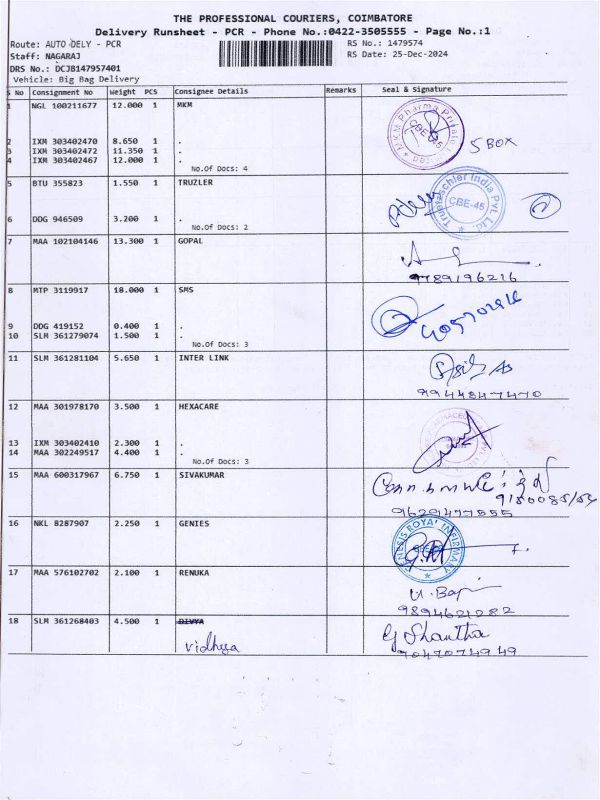 THE PROFESSIONAL COURIERS, COIMBATORE
Delivery Runsheet - PCR - Phone No.:0422-3505555 - Page No.:1
Route: AUTO DELY - PCR RS No.: 1479574
Staff: NAGARAJ RS Date: 25-Dec-2024
DRS No.: DCJB147957401
Vehicle: Big Bag Delivery
S No Consignment No Weight PCS Consignee Details Remarks Seal & Signature
1 NGL 100211677 12.000 1 MKM
MKM Pharma Private CBE-45
2 IXM 303402470 8.650 1 .
3 IXM 303402472 11.350 1 . 5 BOX
4 IXM 303402467 12.000 1 .
No.Of Docs: 4
5 BTU 355823 1.550 1 TRUZLER
Truetzschler India Pvt. Ltd. CBE-45
6 DDG 946509 3.200 1 .
No.Of Docs: 2
7 MAA 102104146 13.300 1 GOPAL
9789196216
8 MTP 3119917 18.000 1 SMS
9 DDG 419152 0.400 1 .
10 SLM 361279074 1.500 1 .
No.Of Docs: 3
11 SLM 361281104 5.650 1 INTER LINK
9944847470
12 MAA 301978170 3.500 1 HEXACARE
13 IXM 303402410 2.300 1 .
14 MAA 302249517 4.400 1 .
No.Of Docs: 3
15 MAA 600317967 6.750 1 SIVAKUMAR
9629477555
16 NKL 8287907 2.250 1 GENIES
17 MAA 576102702 2.100 1 RENUKA
9894621282
18 SLM 361268403 4.500 1 DIVYA
Vidhya
G Shantha
9047074949